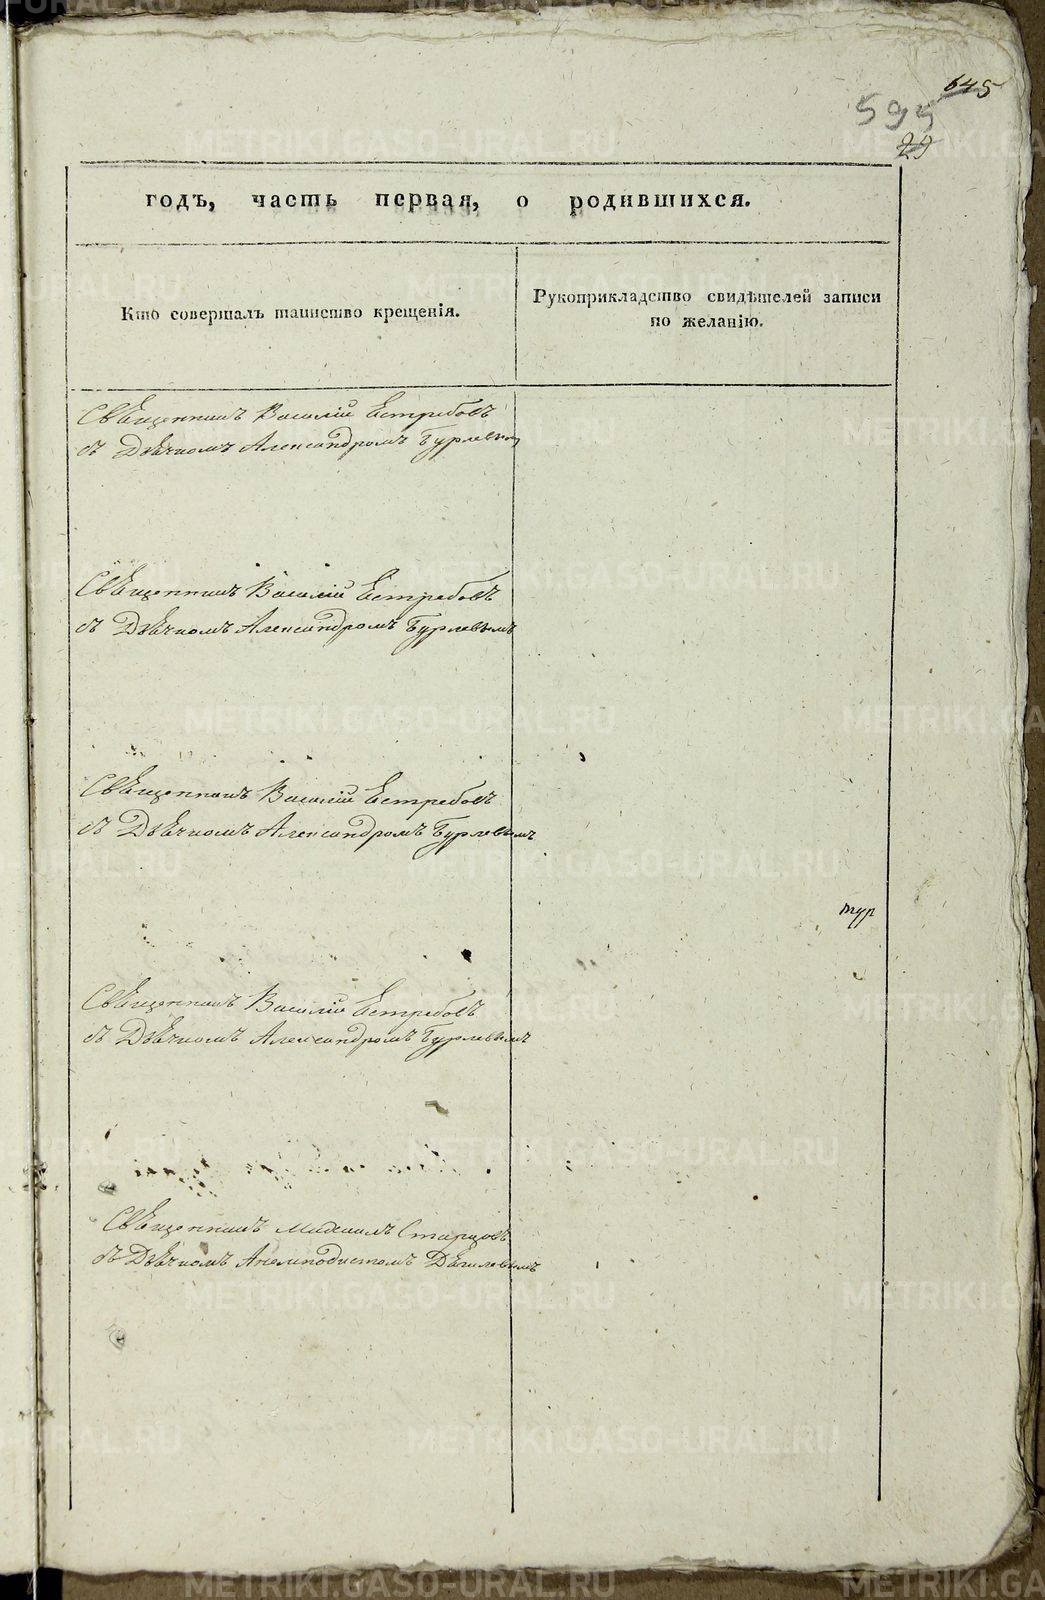 645
595
29
годъ, часть первая, о родившихся.
Кто совершалъ таинство крещенія.
Рукоприкладство свидѣтелей записи
по желанію.
Священникъ Василій Ястребовъ
съ Дьячкомъ Александромъ Бурлевым
Священникъ Василій Ястребовъ
съ Дьячкомъ Александромъ Бурлевымъ
Священникъ Василій Ястребовъ
съ Дьячкомъ Александромъ Бурлевымъ
тур
Священникъ Василій Ястребовъ
съ Дьячкомъ Александромъ Бурлевымъ
Священникъ Михаилъ Старцовъ
съ Дьячкомъ Анемподистомъ
METRIKI.GASO-URAL.RU